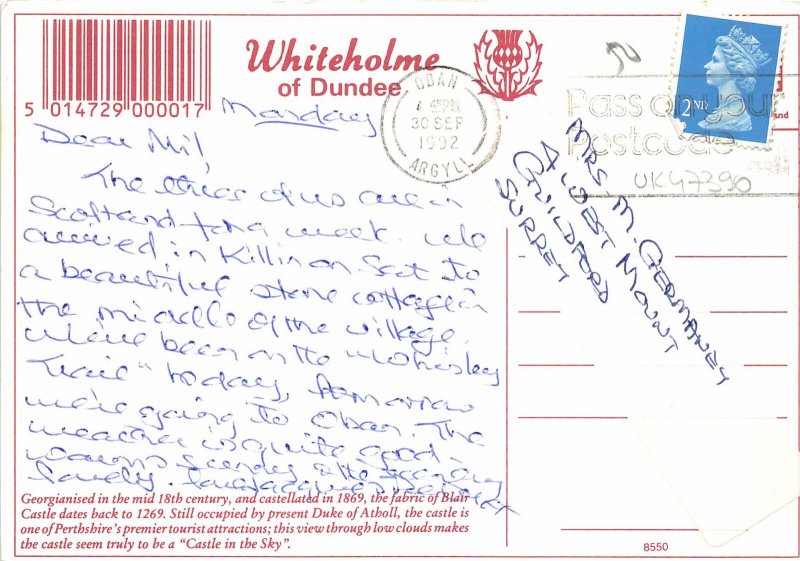 Whiteholme
of Dundee
5 014729 000017
Monday
OBAN
4 PM
30 SEP
1992
ARGYLL
Pass on your
Postcode
2ND
UK47390
Dear Mil,
The three of us are in
Scotland for a week. We
arrived in Killin on Sat to
a beautiful stone cottage in
the middle of the village.
We've been on the "Whiskey
Trail" today, tomorrow
we're going to Oban. The
weather is quite good -
warm & sunny & the scenery
lovely.
MRS. M. GERMANEY
4 WEST MOUNT
GUILDFORD
SURREY
Georgianised in the mid 18th century, and castellated in 1869, the fabric of Blair
Castle dates back to 1269. Still occupied by present Duke of Atholl, the castle is
one of Perthshire's premier tourist attractions; this view through low clouds makes
the castle seem truly to be a "Castle in the Sky".
8550